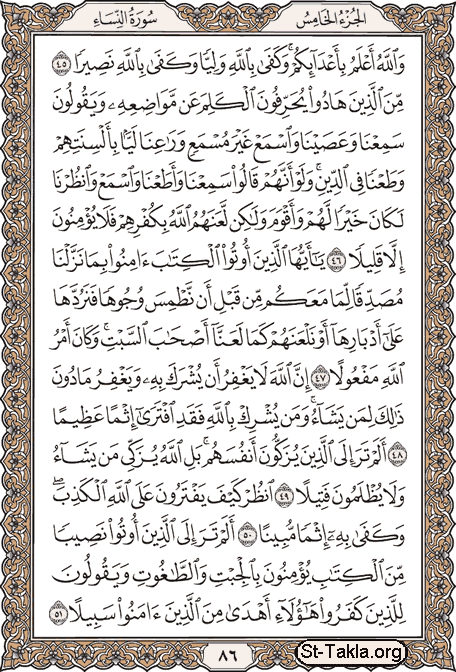 الجزء الخامس
سورة النساء
وَاللَّهُ أَعْلَمُ بِأَعْدَائِكُمْ ۚ وَكَفَىٰ بِاللَّهِ وَلِيًّا وَكَفَىٰ بِاللَّهِ نَصِيرًا ٤٥
مِّنَ الَّذِينَ هَادُوا يُحَرِّفُونَ الْكَلِمَ عَن مَّوَاضِعِهِ وَيَقُولُونَ
سَمِعْنَا وَعَصَيْنَا وَاسْمَعْ غَيْرَ مُسْمَعٍ وَرَاعِنَا لَيًّا بِأَلْسِنَتِهِمْ
وَطَعْنًا فِي الدِّينِ ۚ وَلَوْ أَنَّهُمْ قَالُوا سَمِعْنَا وَأَطَعْنَا وَاسْمَعْ وَانظُرْنَا
لَكَانَ خَيْرًا لَّهُمْ وَأَقْوَمَ وَلَٰكِن لَّعَنَهُمُ اللَّهُ بِكُفْرِهِمْ فَلَا يُؤْمِنُونَ
إِلَّا قَلِيلًا ٤٦ يَا أَيُّهَا الَّذِينَ أُوتُوا الْكِتَابَ آمِنُوا بِمَا نَزَّلْنَا
مُصَدِّقًا لِّمَا مَعَكُم مِّن قَبْلِ أَن نَّطْمِسَ وُجُوهًا فَنَرُدَّهَا
عَلَىٰ أَدْبَارِهَا أَوْ نَلْعَنَهُمْ كَمَا لَعَنَّا أَصْحَابَ السَّبْتِ ۚ وَكَانَ أَمْرُ
اللَّهِ مَفْعُولًا ٤٧ إِنَّ اللَّهَ لَا يَغْفِرُ أَن يُشْرَكَ بِهِ وَيَغْفِرُ مَا دُونَ
ذَٰلِكَ لِمَن يَشَاءُ ۚ وَمَن يُشْرِكْ بِاللَّهِ فَقَدِ افْتَرَىٰ إِثْمًا عَظِيمًا
٤٨ أَلَمْ تَرَ إِلَى الَّذِينَ يُزَكُّونَ أَنفُسَهُم ۚ بَلِ اللَّهُ يُزَكِّي مَن يَشَاءُ
وَلَا يُظْلَمُونَ فَتِيلًا ٤٩ انظُرْ كَيْفَ يَفْتَرُونَ عَلَى اللَّهِ الْكَذِبَ ۖ
وَكَفَىٰ بِهِ إِثْمًا مُّبِينًا ٥٠ أَلَمْ تَرَ إِلَى الَّذِينَ أُوتُوا نَصِيبًا
مِّنَ الْكِتَابِ يُؤْمِنُونَ بِالْجِبْتِ وَالطَّاغُوتِ وَيَقُولُونَ
لِلَّذِينَ كَفَرُوا هَٰؤُلَاءِ أَهْدَىٰ مِنَ الَّذِينَ آمَنُوا سَبِيلًا ٥١
٨٦
St-Takla.org